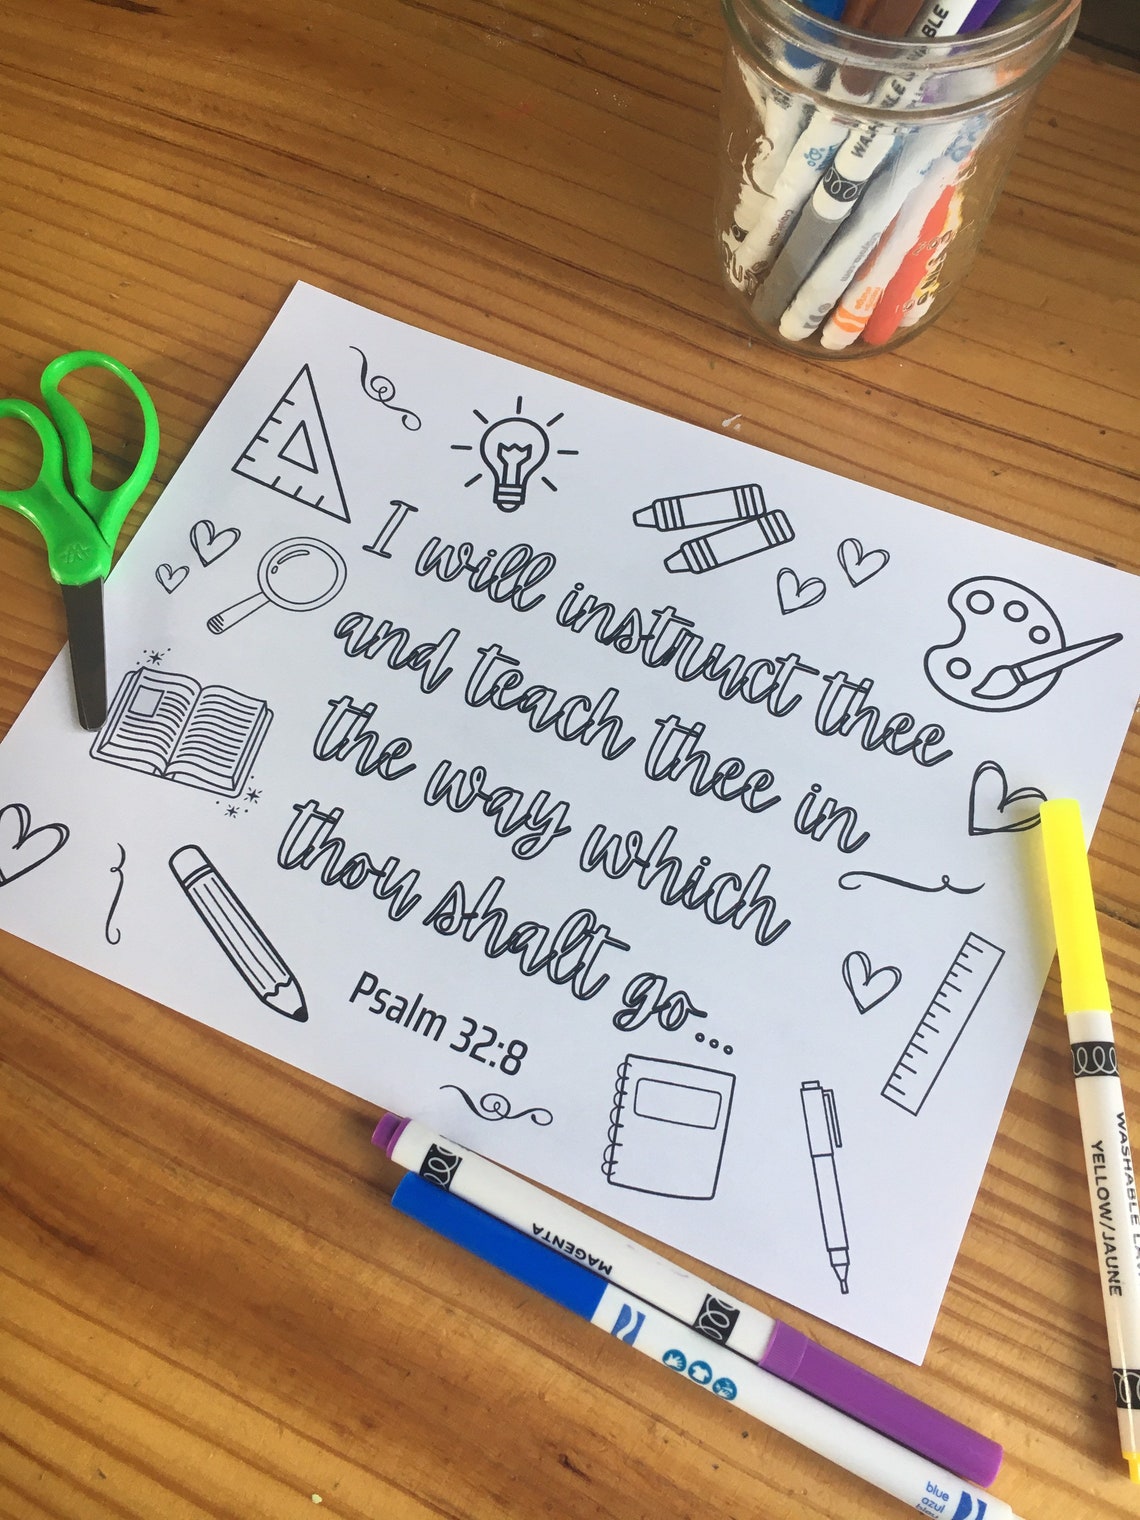 WASHABLE
I will instruct thee
and teach thee in
the way which
thou shalt go...
Psalm 32:8
MAGENTA
WASHABLE
YELLOW/JAUNE
blue
azul
bleu